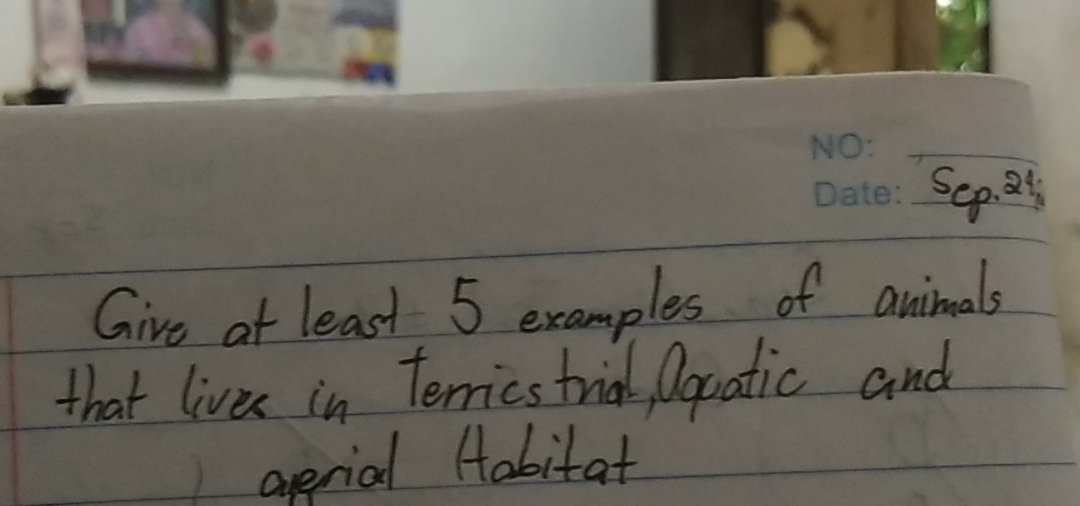 NO:
Date: Sep. 21,
Give at least 5 examples of animals
that lives in Terricstrial, Aquatic and
aerial Habitat